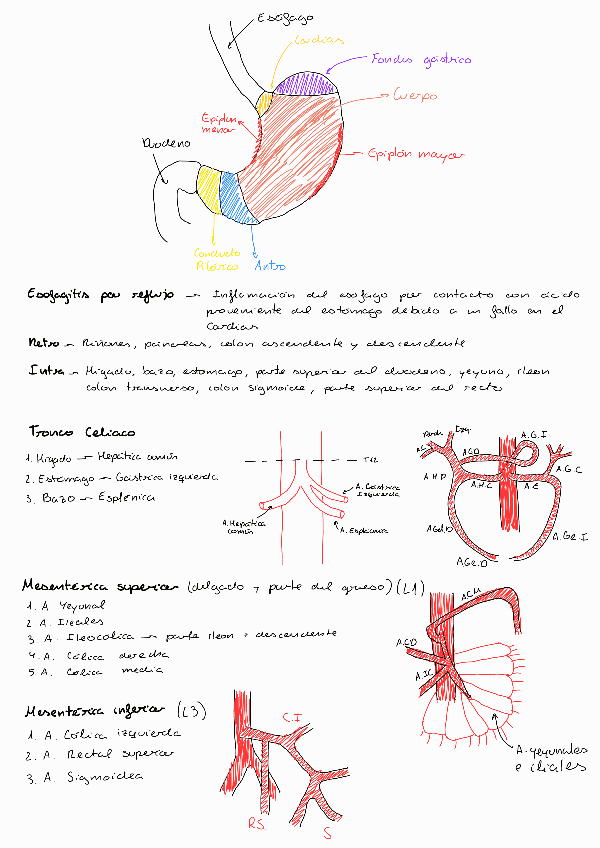 Esófago
Cardias
Fondus gástrico
Cuerpo
Epiplon
menor
Duodeno
Epiplón mayor
Conducto
Pilórico
Antro
Esofagitis por reflujo → Inflamación del esofago por contacto con ácido
proveniente del estomago debido a un fallo en el
Cardias
Retro → Riñones, páncreas, colon ascendente y descendente
Intra → Higado, bazo, estomago, parte superior del duodeno, yeyuno, ileon
colon transverso, colon sigmoide, parte superior del recto
Tronco Celiaco
1. Higado → Hepática común
2. Estomago → Gástrica izquierda
3. Bazo → Esplénica
T12
A. Gástrica
Izquierda
A. Hepática
común
A. Esplénica
Izq.
A.G.I
ACD
A.G.C
A.H.P
A.H.C
A.E
AGe.D
A.Ge.I
AGe.D
Mesentérica superior (delgado y parte del grueso) (L1)
1. A. Yeyunal
2. A. Ileales
3. A. Ileocólica → parte ileon + descendente
4. A. Cólica derecha
5. A. Cólica media
A.C.M
A.CD
A.IC
A. yeyunales
e iliales
Mesentérica inferior (L3)
1. A. Cólica izquierda
2. A. Rectal superior
3. A. Sigmoidea
C.I
RS
S